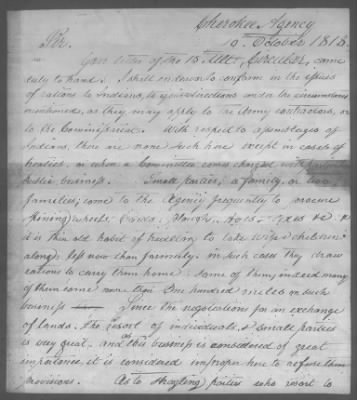 Cherokee Agency
October 1818
Sir.
Your letter of the 15 Ult. Circular, came
duly to hand. I shall endeavor to conform in the issues
of rations to Indians, to your directions under the circumstances
mentioned, as they may apply to the Army contractors, or
to the Commissariat. With respect to assemblages of
Indians, there are none such here except in cases of
treaties, or when a Committee come charged with
public business. Small parties, a family, or two
families; come to the Agency frequently to procure
spinning wheels, Cards, Plough, Hoes, axes &c &
it is their old habit of travelling to take wife & children
along, less now than formerly. in such cases they draw
rations to carry them home. Some of them, indeed many
of them come more than One hundred miles on such
business Since the negotiations for an exchange
of lands, the resort of individuals, & small parties
is very great, and as this business is considered of great
importance it is considered improper here to refuse them
provisions. As to straggling parties who resort to